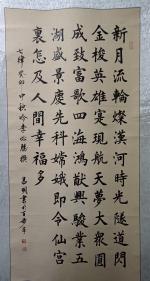 新月流輪燦漢河時光隧道閃
金梭英雄寔現航天夢大衆圓
成致富歌四海鴻猷興駿業五
湖盛景慶先科嫦娥即令仙宮
裏怎及人間幸福多
七律癸巳中秋吟李心鵬撰